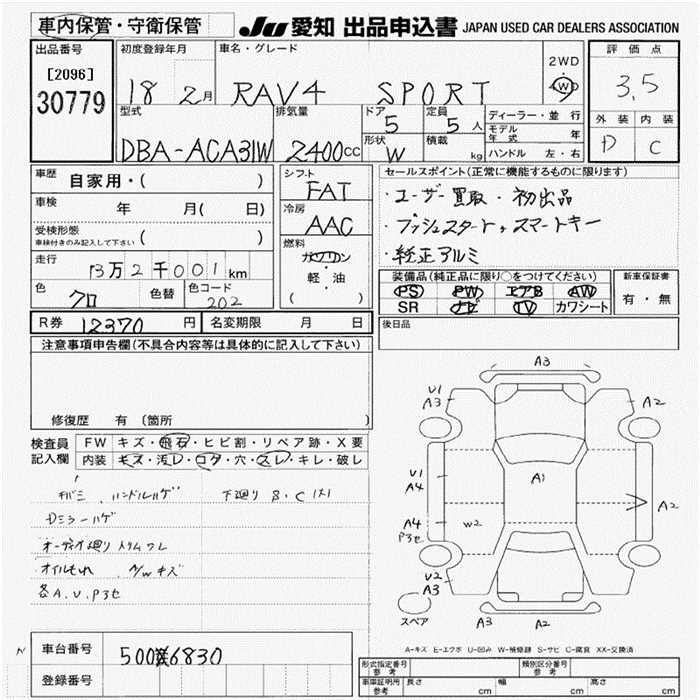 車内保管・守衛保管
JU 愛知 出品申込書 JAPAN USED CAR DEALERS ASSOCIATION
出品番号
[2096]
30779
初度登録年月
18 2月
車名・グレード
RAV4 SPORT
2WD
4WD
評価点
3,5
外装 内装
D C
型式
DBA-ACA31W
排気量
2400cc
ドア
5
定員
5人
形状
W
積載
kg
ディーラー・並行
モデル年式 年
ハンドル 左・右
車歴 自家用・( )
車検 年 月( 日)
受検形態
車検付きのみ記入して下さい ( )
走行
13万2千001km
色
クロ
色替
色コード
202
シフト
FAT
冷房
AAC
燃料
ガソリン
・
軽・油
( )
セールスポイント(正常に機能するものに限ります)
・ユーザー買取・初出品
・プッシュスタート、スマートキー
・純正アルミ
装備品(純正品に限り○をつけてください)
PS PW エアB AW
SR ナビ TV カワシート
新車保証書
有・無
R券 12370円
名変期限 月 日
後日品
注意事項申告欄(不具合内容等は具体的に記入して下さい)
修復歴 有 〔箇所 〕
検査員記入欄
FW キズ・飛石・ヒビ割・リペア跡・X要
内装 キズ・汚レ・コゲ・穴・スレ・キレ・破レ
ハンドルハゲ 下廻りS・C(大)
Dミラーハゲ
オーディオ廻りトリムワレ
オイルもれ A/Wキズ
各A.U.Pヨセ
A3
U1
A3
A2
U1
A4
A1
A4
Pヨセ
W2
A2
U2
A3
スペア
A3
A2
A-キズ E-エクボ U-凹み W-補修跡 S-サビ C-腐食 XX-交換済
N
車台番号
6830
登録番号
形式指定番号
参考
類別区分番号
参考
車庫証明用
参考
長さ cm 幅 cm 高さ cm